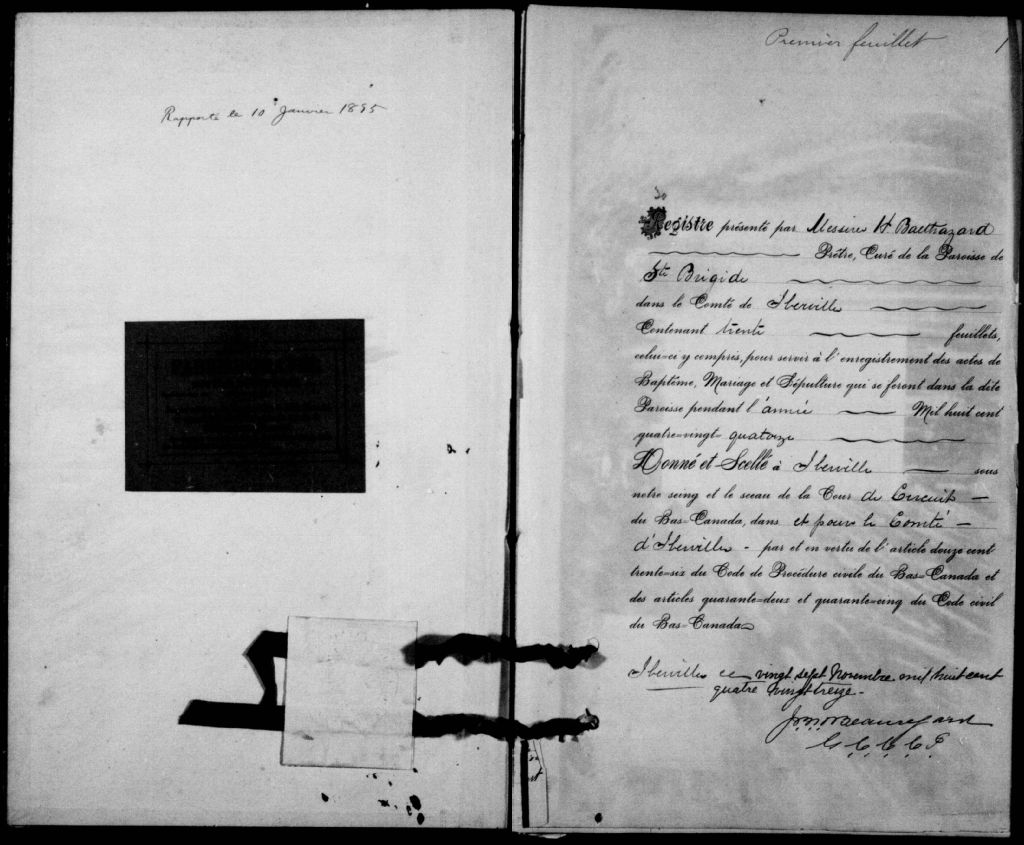 Rapporté le 10 Janvier 1895
Premier feuillet 1
30
Registre présenté par Messire H Balthazard
Prêtre, Curé de la Paroisse de
Ste Brigide
dans le Comté de Iberville
Contenant trente feuillets,
celui-ci y compris, pour servir à l'enregistrement des actes de
Baptême, Mariage et Sépulture qui se feront dans la dite
Paroisse pendant l'année Mil huit cent
quatre-vingt-quatorze
Donné et Scellé à Iberville sous
notre seing et le sceau de la Cour de Circuit
du Bas-Canada, dans et pour le Comté
d'Iberville - par et en vertu de l'article douze cent
trente-six du Code de Procédure civile du Bas-Canada et
des articles quarante-deux et quarante-cinq du Code civil
du Bas-Canada
Iberville ce vingt sept Novembre mil huit cent
quatre vingt treize.
Beauregard